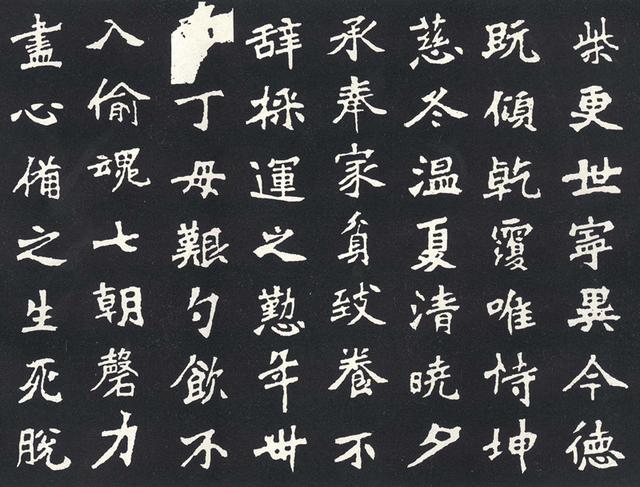 柴更世寧異今德
既傾乾覆唯恃坤
慈冬温夏清曉夕
承奉家貧致養不
辞採運之懃年卅
丁母艱勺飲不
入偷魂七朝磬力
盡心備之生死脫